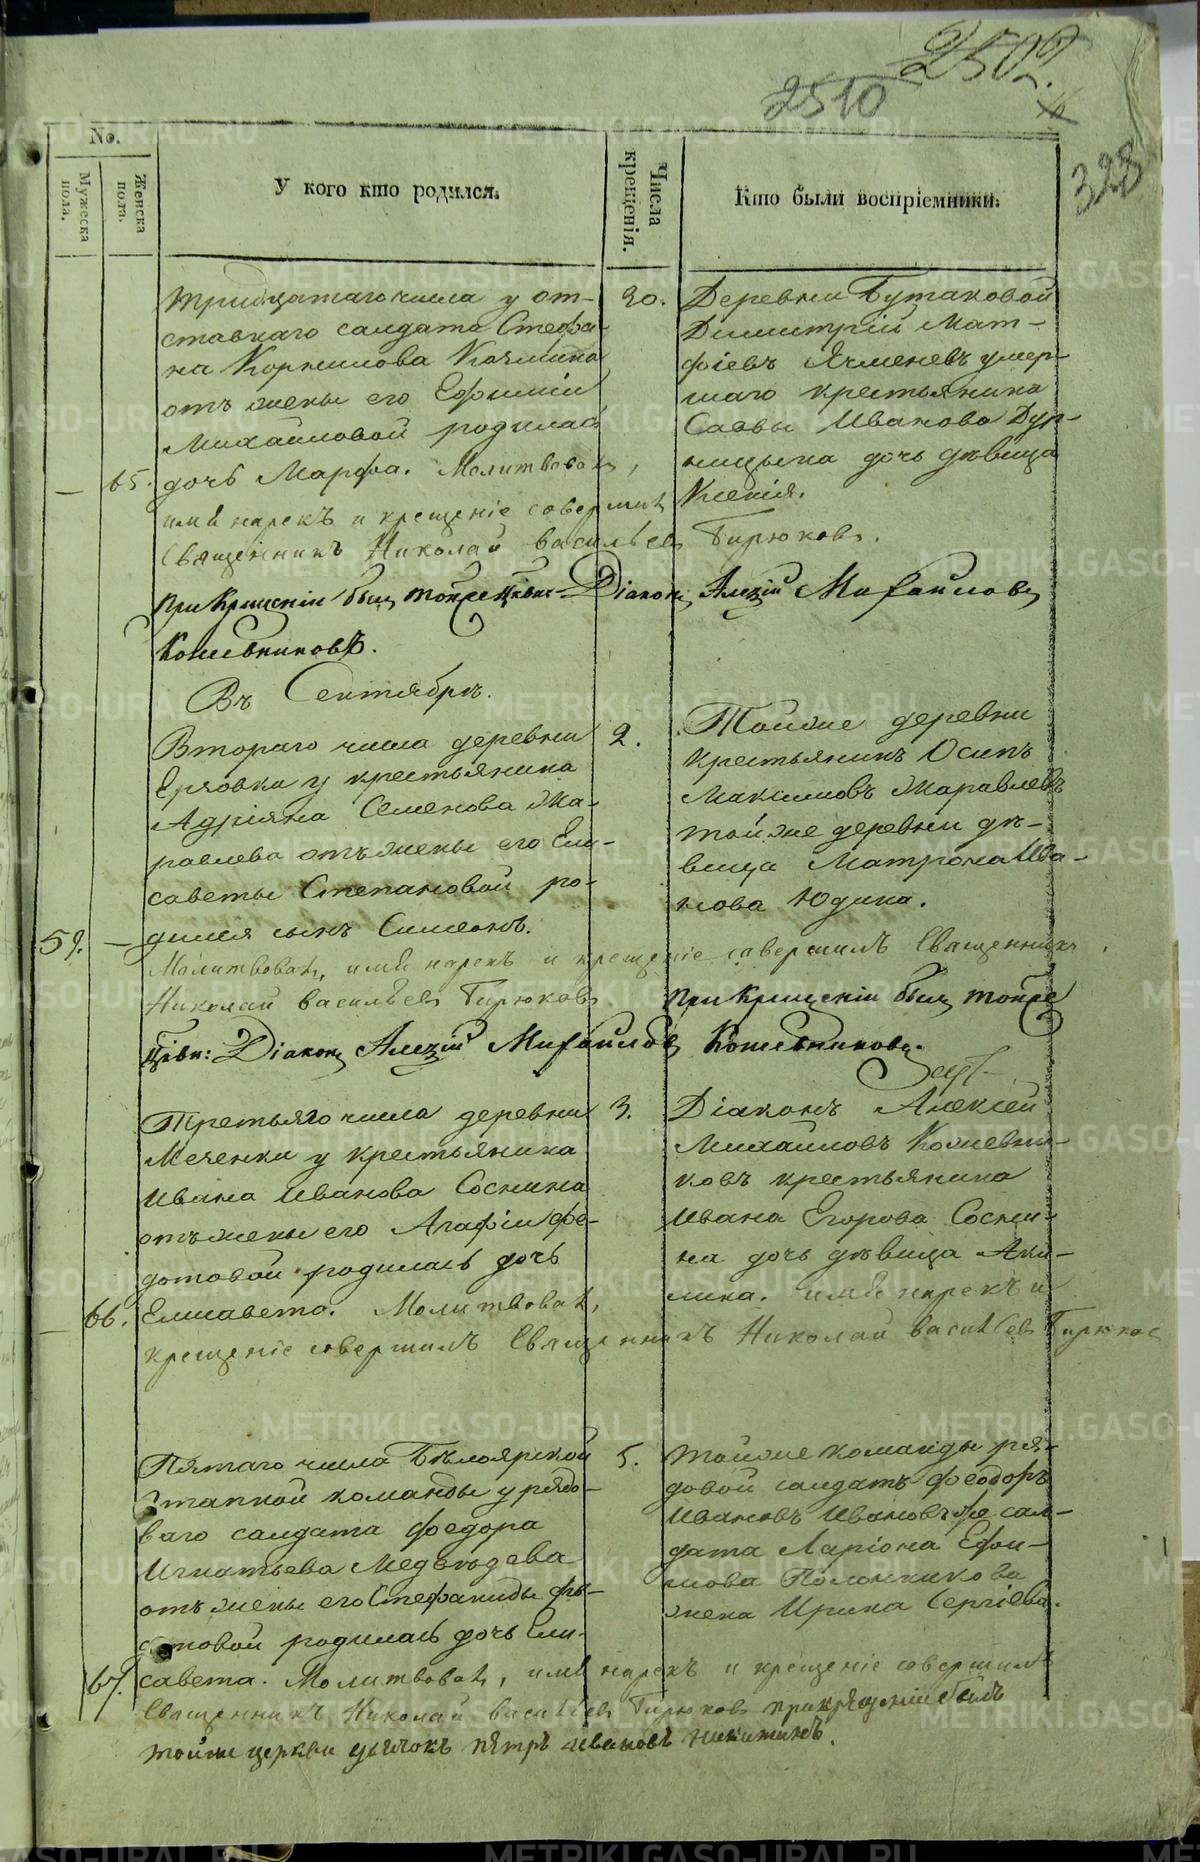 2502.
2510
328
No.
Мужеска пола.
Женска пола.
У кого кто родился.
Числа крещенія.
Кто были воспріемники.
Тридцатаго числа у от-
ставнаго салдата Стефа-
на Корнилова
отъ жены его Ефиміи
Михайловой родилась
65. дочь Марфа. Молитвовалъ,
имя нарекъ и крещеніе совершилъ
Священникъ Николай Васильевъ Бирюковъ.
При Крещеніи былъ тойже Церкви Діаконъ Алексій Михайловъ
Кожевниковъ.
30.
Деревни Бутаковой
Димитрій Мат-
фіевъ Ячменевъ умер-
шаго крестьянина
Саввы Иванова Дур-
ницына дочь дѣвица
Ксенія.
Въ Сентябрѣ.
Втораго числа деревни
Ерзовки у крестьянина
Адріяна Семенова Жа-
равлева отъ жены его Ели-
саветы Степановой ро-
59. дился сынъ Симеонъ.
Молитвовалъ, имя нарекъ и крещеніе совершилъ Священникъ
Николай Васильевъ Бирюковъ При Крещеніи былъ тойже
Церкви: Діаконъ Алексій Михайловъ Кожевниковъ.
2.
Тойже деревни
крестьянинъ Осипъ
Максимовъ Жаравлевъ
тойже деревни дѣ-
вица Матрона Ива-
нова Юдина.
Третьяго числа деревни
Меченки у крестьянина
Ивана Иванова Соснина
отъ жены его Агафіи Фе-
дотовой родилась дочь
66. Елисавета. Молитвовалъ,
3.
Діаконъ Алексей
Михайловъ Кожевни-
ковъ крестьянина
Ивана Егорова Сосни-
на дочь дѣвица Аки-
лина. имя нарекъ и
крещеніе совершилъ Священникъ Николай Васильевъ Бирюков
Пятаго числа Бѣлоярской
Этапной команды у рядо-
ваго салдата Федора
Игнатьева Медвѣдева
отъ жены его Стефаниды
родилась дочь Ели-
67. савета. Молитвовалъ, имя нарекъ и крещеніе совершилъ
Священникъ Николай Васильевъ Бирюковъ при крещеніи былъ
тойже церкви дьячокъ Пѣтръ Ивановъ Никитинъ.
5.
Тойже команды ря-
довой салдатъ Феодоръ
Ивановъ Ивановъ же сал-
дата Ларіона Ефи-
мова
жена Ирина Сергіева.
METRIKI.GASO-URAL.RU